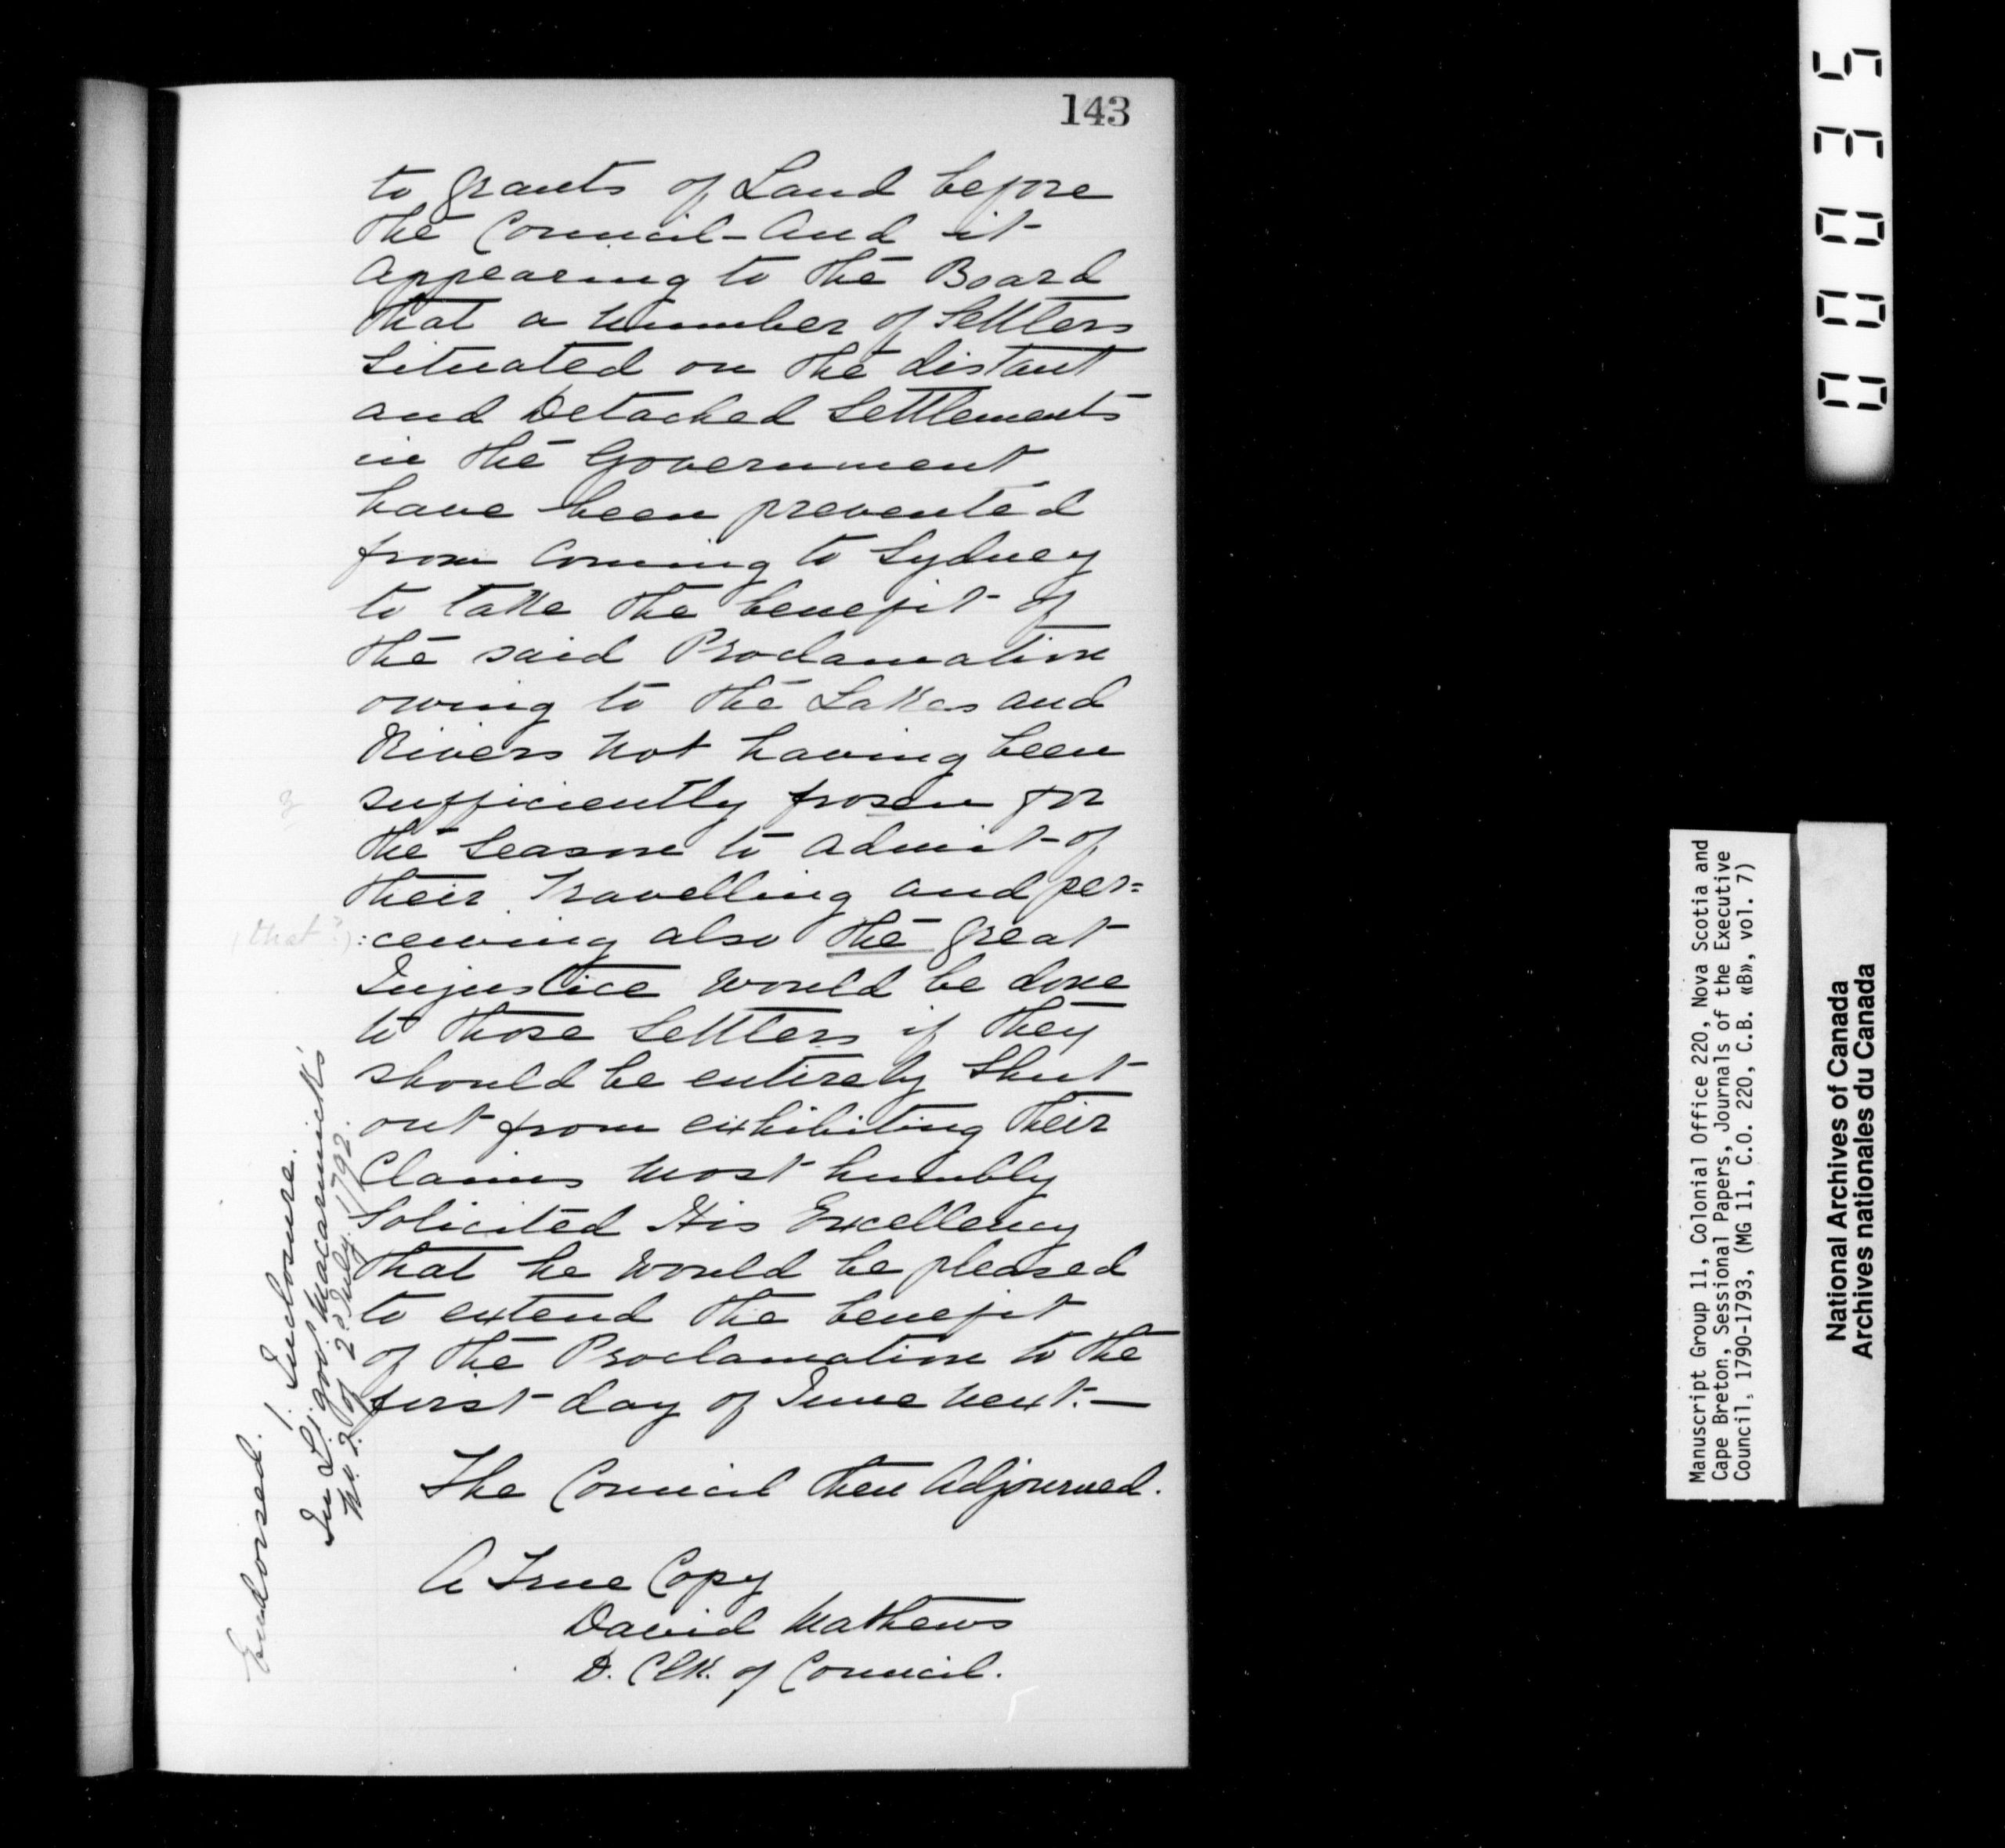 143
to grants of Land before
the Council - And it
appearing to the Board
that a number of Settlers
Situated on the distant
and Detached Settlements
in the Government
have been prevented
from Coming to Sydney
to take the benefit of
the said Proclamation
owing to the Lakes and
Rivers not having been
z
sufficiently frosen for
the Season to admit of
their Travelling and per=
(that?)
:ceiving also the great
Injustice would be done
to those Settlers if they
should be entirely Shut
out from exhibiting their
Claims most humbly
Solicited His Excellency
that he would be pleased
to extend the benefit
of the Proclamation to the
first day of June next. —
The Council then Adjourned.
A True Copy
David Mathews
D. Clk. of Council.
Endorsed! Inclosure.
In Lt. govr. Macarmick's
No. 2 of 2d July 1792.
00035
Manuscript Group 11, Colonial Office 220, Nova Scotia and
Cape Breton, Sessional Papers, Journals of the Executive
Council, 1790-1793, (MG 11, C.O. 220, C.B. «B», vol. 7)
National Archives of Canada
Archives nationales du Canada